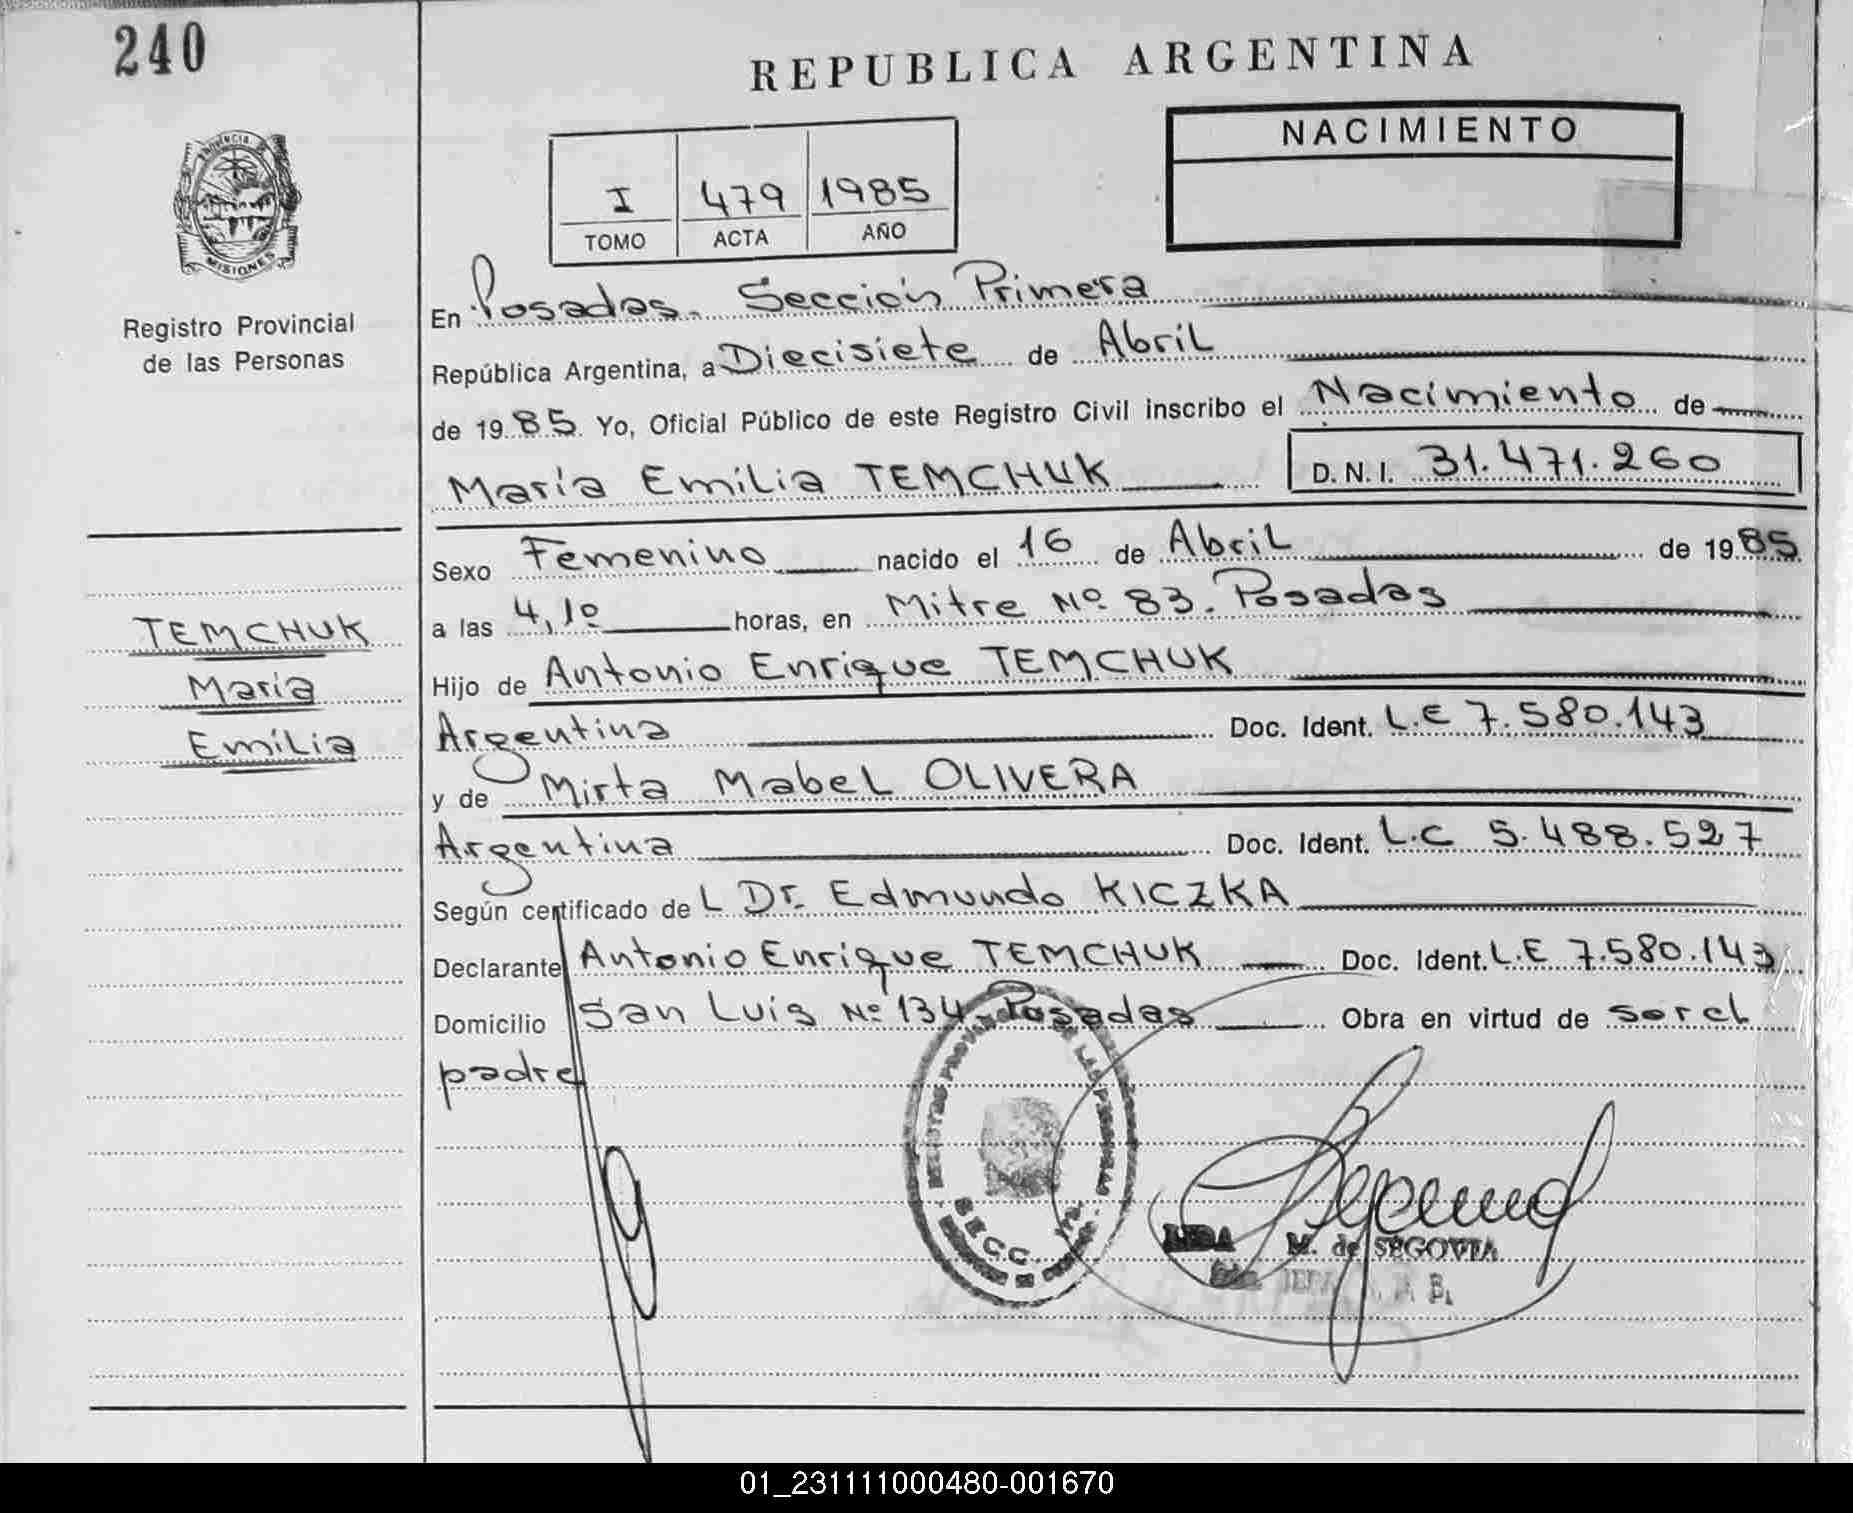 240
REPUBLICA ARGENTINA
PROVINCIA DE
MISIONES
Registro Provincial
de las Personas
NACIMIENTO
I 479 1985
TOMO ACTA AÑO
En Posadas. Sección Primera
República Argentina, a Diecisiete de Abril
de 1985 Yo, Oficial Público de este Registro Civil inscribo el Nacimiento de
María Emilia TEMCHUK D.N.I. 31.471.260
Sexo Femenino nacido el 16 de Abril de 1985
a las 4,10 horas, en Mitre Nº 83. Posadas
Hijo de Antonio Enrique TEMCHUK
Argentina Doc. Ident. L.E 7.580.143
y de Mirta Mabel OLIVERA
Argentina Doc. Ident. L.C 5.488.527
Según certificado del Dr. Edmundo KICZKA
Declarante Antonio Enrique TEMCHUK Doc. Ident. L.E 7.580.143
Domicilio San Luis Nº 134 Posadas Obra en virtud de ser el
padre
TEMCHUK
María
Emilia
REGISTRO PROVINCIAL DE LAS PERSONAS
SECC. 1ra.
M. de SEGOVIA
01_231111000480-001670